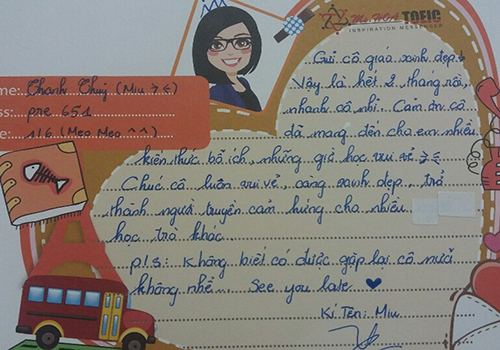 Ms HOA TOEIC
INSPIRATION MESSENGER
me: Thanh Thuý (Miu >.<)
ss: pre 651
e: 116 (Meo Meo ^^)
Gửi cô giáo xinh đẹp
Vậy là hết 2 tháng rồi,
nhanh cô nhỉ. Cảm ơn cô
đã mang đến cho em nhiều
kiến thức bổ ích, những giờ học vui vẻ >.<
Chúc cô luôn vui vẻ, càng xinh đẹp, trở
thành người truyền cảm hứng cho nhiều
học trò khác.
p/s: Không biết có được gặp lại cô nữa
không nhể. See you late ♥
Kí Tên: Miu